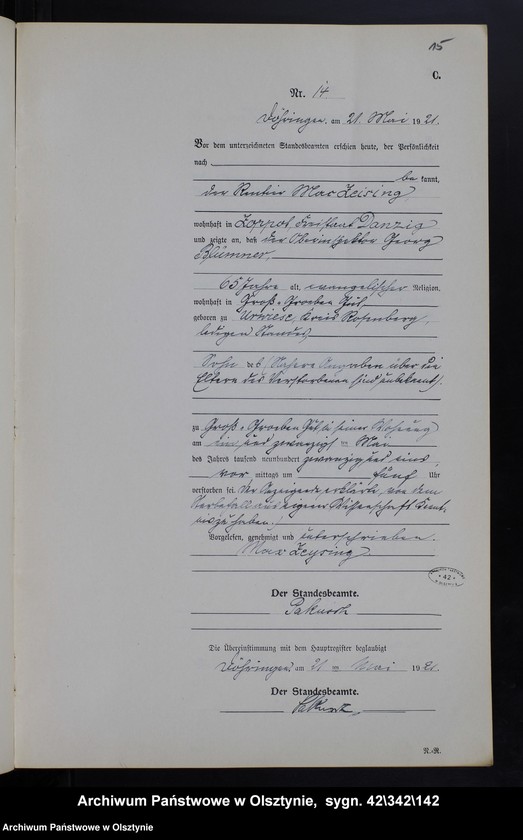 15
C.
Nr. 14.
Döhringen, am 21. Mai 1921.
Vor dem unterzeichneten Standesbeamten erschien heute, der Persönlichkeit
nach
be kannt,
der Rentier Max Leising
wohnhaft in Zoppot Freistaat Danzig
und zeigte an, daß der Oberinspektor Georg
Blümner,
65 Jahre alt, evangelischer Religion,
wohnhaft in Groß-Groeben Gut,
geboren zu Kreis Rosenberg,
ledigen Standes
Sohn des (Nähere Angaben über die
Eltern des Verstorbenen sind unbekannt).
zu Groß-Groeben Gut in seiner Wohnung
am ein und zwanzigsten Mai
des Jahres tausend neunhundert zwanzig und eins
vor mittags um fünf Uhr
verstorben sei. Der Anzeigende erklärte, von dem
Sterbefall aus eigener Wissenschaft Kennt-
nis zu haben.
Vorgelesen, genehmigt und unterschrieben.
Max Leysing
Der Standesbeamte.
42
Die Übereinstimmung mit dem Hauptregister beglaubigt
Döhringen, am 21 ten Mai 1921.
Der Standesbeamte.
N.-R.
Archiwum Państwowe w Olsztynie, sygn. 42\342\142
Archiwum Państwowe w Olsztynie